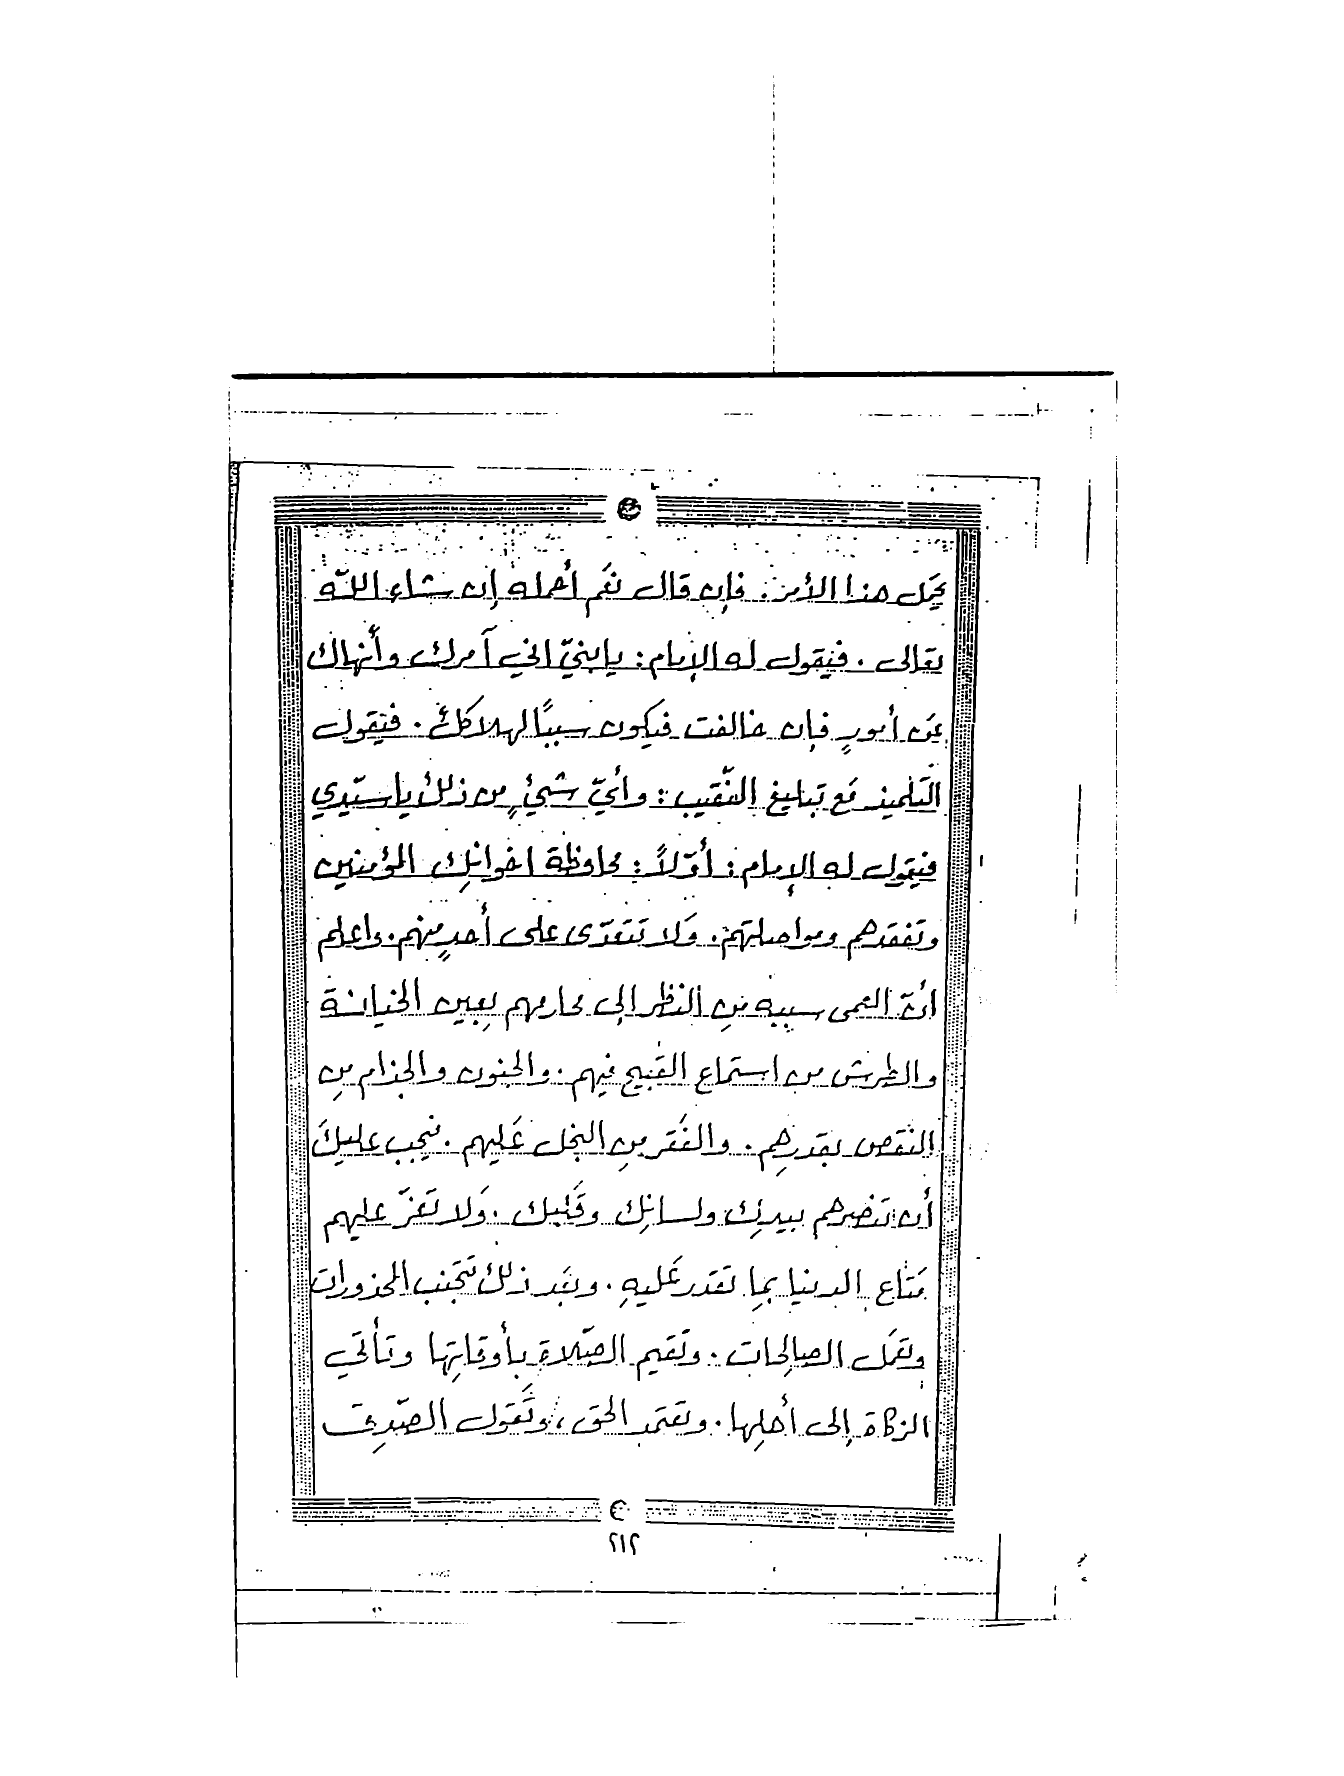 يحمَل هذا الأمر. فإن قال نعَم أحمله إن شاء اللّه
تعَالى. فيَقول له الإمام: يا بنيّ اني آمرك وأَنهاك
عَن أمورٍ فإن خالفت فيكون سببًا لهلاكَك. فيَقول
التَلميذ مَع تبليغ النّقيب: وأيّ شيءٍ من ذلك يا سيّدي
فيَقول له الإمام: أوّلاً: محافظة اخوانك المؤمنين
وتفقدهم ومواصلتهم. وَلا تتَعَدّى على أحدٍ منهم. واعلم
انّ العمى سببه مَن النظر إلى محارمهم بِعين الخيانة
والطرش من استماع القبيح فيهم. والجنون والجذام مِن
النقص بقدرِهم. والفَقر مِن البخل عَليهم. فيجب عليكَ
أن تنصرهم بيدِك ولسانِك وقَلبك. وَلا تَعَزّ عليهم
مَتاع الدنيا بما تقدر عَليهِ. وبعَد ذلك تَجَنب المحذورات
وتعمَل الصالِحات. وتَقيم الصّلاةِ بأوقاتِها وتأتي
الزكاة إلى أهلِها. وتعَتمد الحق، وتَقول الصّدِق
٢١٢